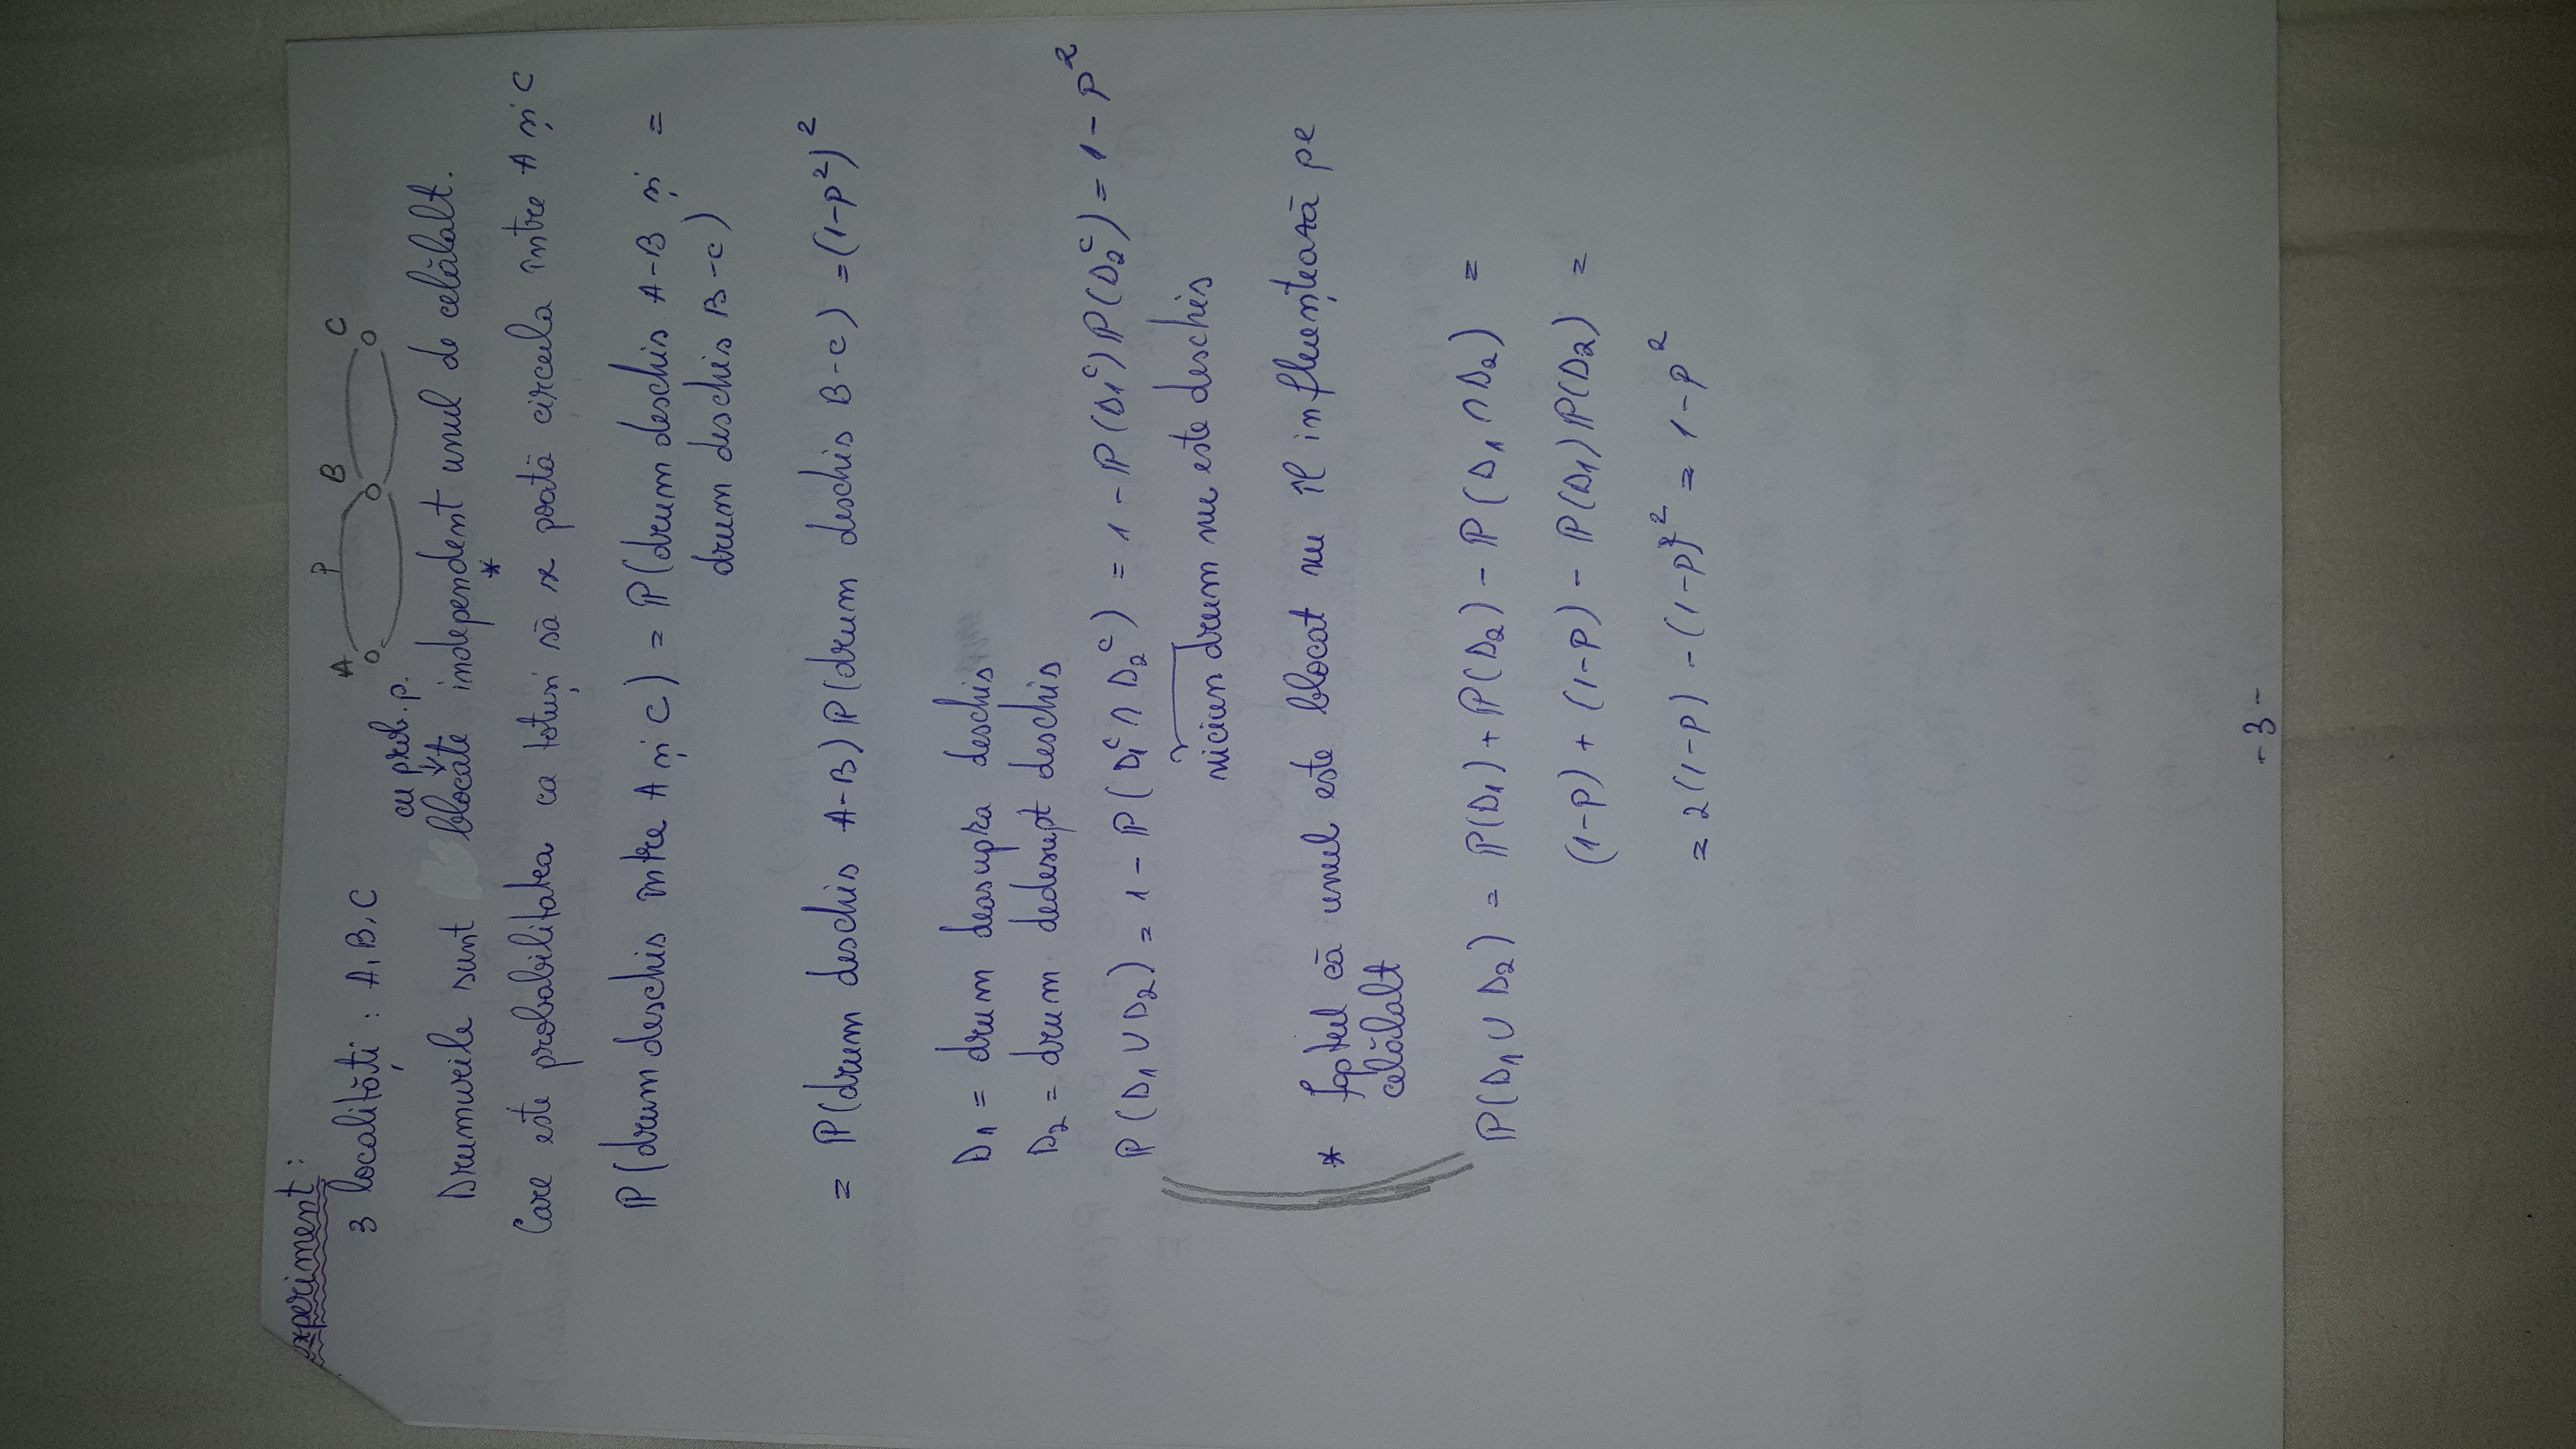 Experiment:
3 localități : A, B, C
A P B C
cu prob. p.
↓
Drumurile sunt blocate independent unul de celălalt.
*
Care este probabilitatea ca totuși să se poată circula între A și C
ℙ(drum deschis între A și C) = ℙ(drum deschis A-B și =
drum deschis B-C)
= ℙ(drum deschis A-B) ℙ(drum deschis B-C) = (1-p²)²
D₁ = drum deasupra deschis
D₂ = drum dedesupt deschis
ℙ(D₁ ∪ D₂) = 1 - ℙ(D₁ᶜ ∩ D₂ᶜ) = 1 - ℙ(D₁ᶜ) ℙ(D₂ᶜ) = 1 - p²
niciun drum nu este deschis
* faptul că unul este blocat nu îl influențează pe
celălalt
ℙ(D₁ ∪ D₂) = ℙ(D₁) + ℙ(D₂) - ℙ(D₁ ∩ D₂) =
(1-p) + (1-p) - ℙ(D₁) ℙ(D₂) =
= 2(1-p) - (1-p)² = 1 - p²
- 3 -